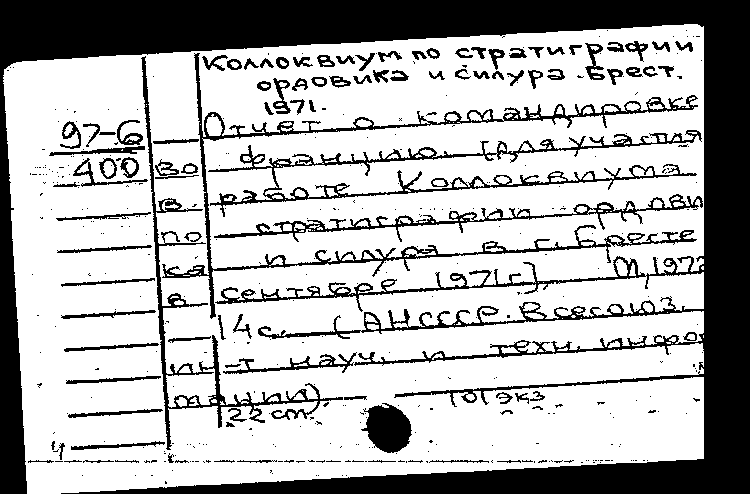 Коллоквиум по стратиграфии
ордовика и силура. Брест.
1971.
97-6
400
Отчет о командировке
во Францию. [Для участия
в работе Коллоквиума
по стратиграфии ордови
ка и силура в г. Бресте
в сентябре 1971г], М, 1972
14с. (АНСССР. Всесоюз.
ин-т науч. и техн. инфор
мации).
22 cm. 101 экз